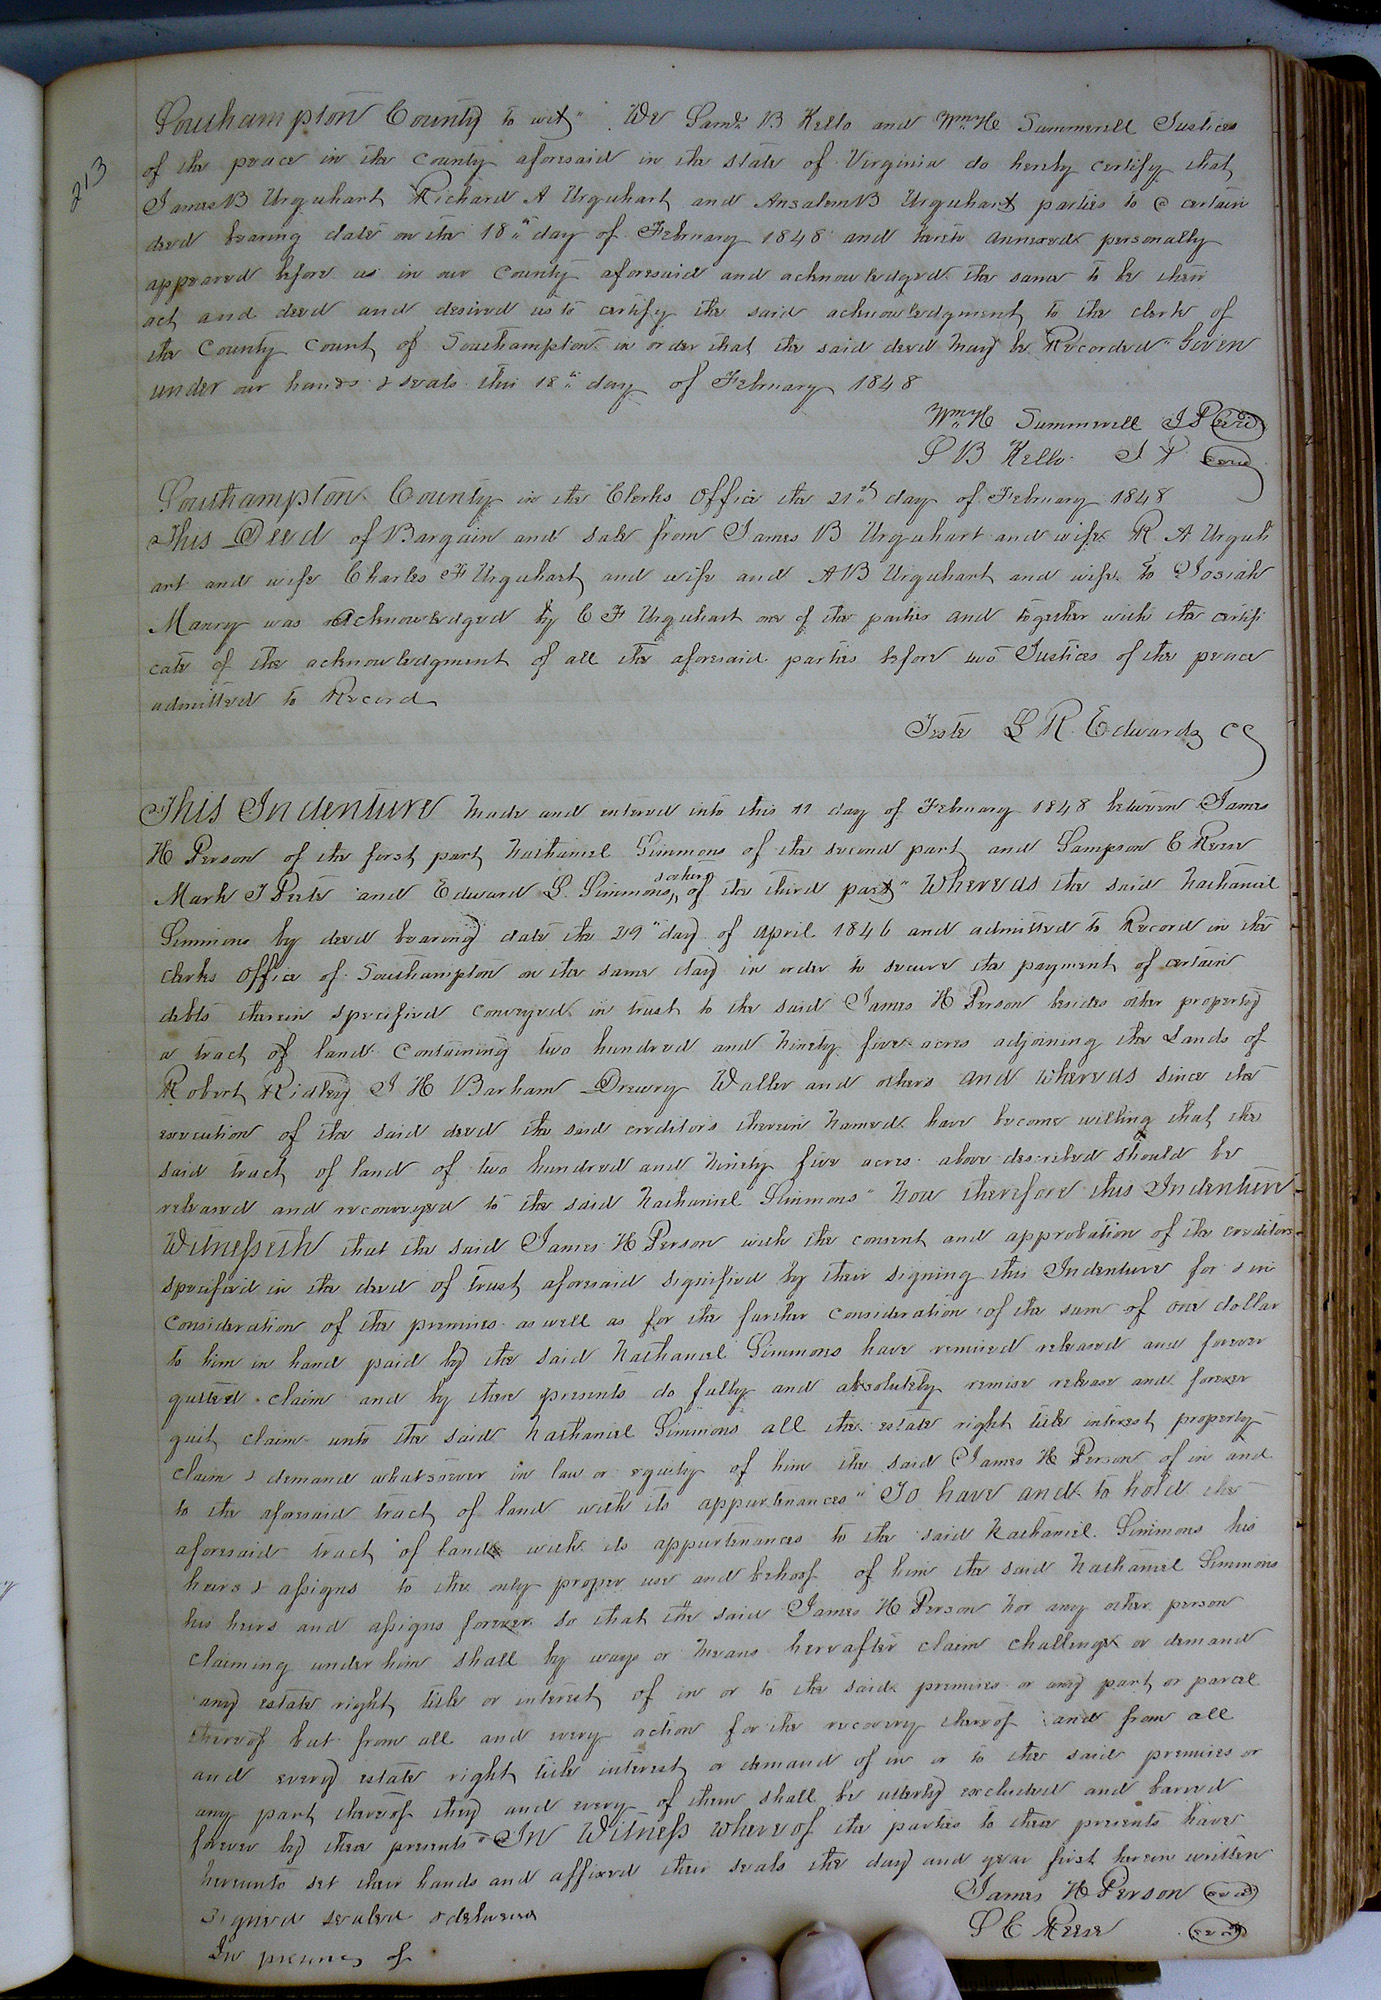 213
Southampton County to wit" We Saml B Kello and Wm H Summerell Justices
of the peace in the County aforesaid in the state of Virginia do hereby certify that
James B Urquhart Richard A Urquhart and Ansalem B Urquhart parties to a certain
deed bearing date on the 18th day of February 1848 and hereto annexed personally
appeared before us in our County aforesaid and acknowledged the same to be their
act and deed and desired us to certify the said acknowledgment to the clerk of
the County Court of Southampton in order that the said deed may be Recorded" Given
under our hands & seals this 18th day of February 1848
Wm H Summerell J P seal
S B Kello J P seal
Southampton County in the Clerks Office the 21st day of February 1848
This Deed of Bargain and sale from James B Urquhart and wife R A Urquh
art and wife Charles F Urquhart and wife and A B Urquhart and wife to Josiah
Manry was acknowledged by C F Urquhart one of the parties and together with the certifi
cate of the acknowledgment of all the aforesaid parties before two Justices of the peace
admitted to Record
Teste L R Edwards CC
This Indenture made and entered into this 11 day of February 1848 between James
H Person of the first part Nathaniel Simmons of the second part and Sampson C Reese
Mark J Pete and Edward L. Simmons, of the third part" Whereas the said Nathaniel
Simmons by deed bearing date the 29" day of April 1846 and admitted to Record in the
clerks Office of Southampton on the same day in order to secure the payment of certain
debts therein specified conveyed in trust to the said James H Person besides other property
a tract of land containing two hundred and ninety five acres adjoining the Lands of
Robert Ridley J H Barham Drewry Waller and others and whereas since the
execution of the said deed the said creditors therein named have become willing that the
said tract of land of two hundred and ninety five acres above described should be
released and reconveyed to the said Nathaniel Simmons" Now therefore this Indenture
Witnesseth that the said James H Person with the consent and approbation of the creditors
specified in the deed of trust aforesaid signified by their signing this Indenture for & in
consideration of the premises as well as for the further consideration of the sum of one dollar
to him in hand paid by the said Nathaniel Simmons have remised released and forever
quited claim and by these presents do fully and absolutely remise release and forever
quit claim unto the said Nathaniel Simmons all the estate right title interest property
claim & demand whatsoever in law or equity of him the said James H Person of in and
to the aforesaid tract of land with its appurtenances" To have and to hold the
aforesaid tract of land with its appurtenances to the said Nathaniel Simmons his
heirs & assigns to the only proper use and behoof of him the said Nathaniel Simmons
his heirs and assigns forever so that the said James H Person nor any other person
claiming under him shall by ways or means hereafter claim challenge or demand
any estate right title or interest of in or to the said premises or any part or parcel
thereof but from all and every action for the recovery thereof and from all
and every estate right title interest or demand of in or to the said premises or
any part thereof they and every of them shall be utterly excluded and barred
forever by these presents" In Witness whereof the parties to these presents have
hereunto set their hands and affixed their seals the day and year first herein written
Signed sealed & delivered
In presence of
James H Person seal
S C Reese seal